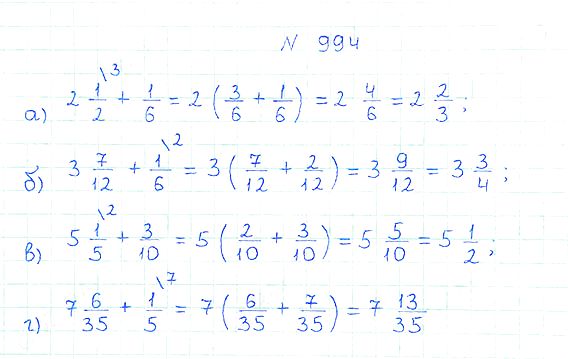 N 994
а) 2 1/2 \3 + 1/6 = 2 (3/6 + 1/6) = 2 4/6 = 2 2/3 ;
б) 3 7/12 + 1/6 \2 = 3 (7/12 + 2/12) = 3 9/12 = 3 3/4 ;
в) 5 1/5 \2 + 3/10 = 5 (2/10 + 3/10) = 5 5/10 = 5 1/2 ;
г) 7 6/35 + 1/5 \7 = 7 (6/35 + 7/35) = 7 13/35